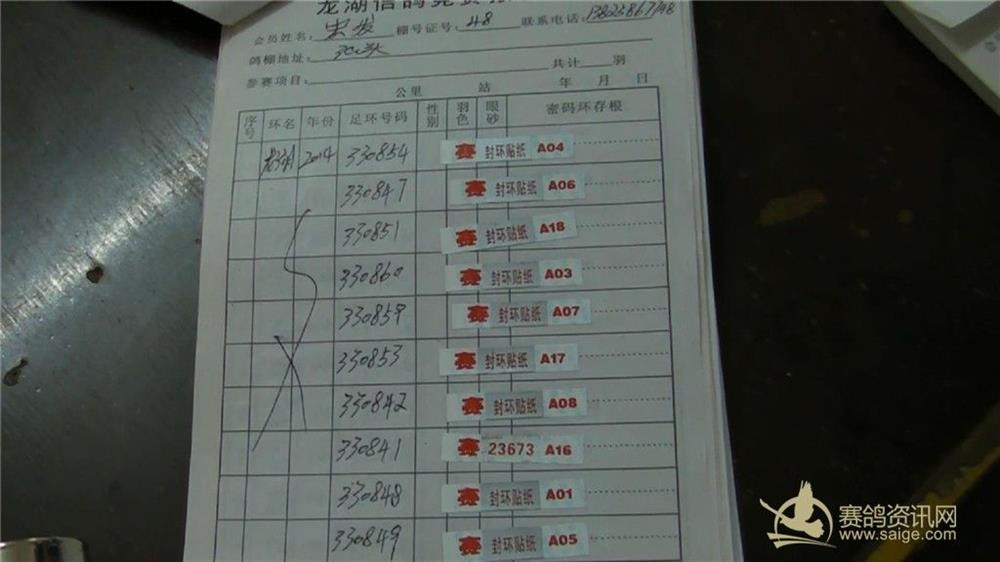 龙湖信鸽竞赛
会员姓名： 棚号证号：48 联系电话：
鸽棚地址：
参赛项目： 共计 羽
公里 站 年 月 日
序号 环名 年份 足环号码 性别 羽色 眼砂 密码环存根
龙湖 2014 330854 赛 封环贴纸 A04
330847 赛 封环贴纸 A06
330851 赛 封环贴纸 A18
330860 赛 封环贴纸 A03
330859 赛 封环贴纸 A07
330853 赛 封环贴纸 A17
330842 赛 封环贴纸 A08
330841 赛 23673 A16
330848 赛 封环贴纸 A01
330849 赛 封环贴纸 A05
赛鸽资讯网
www.saige.com